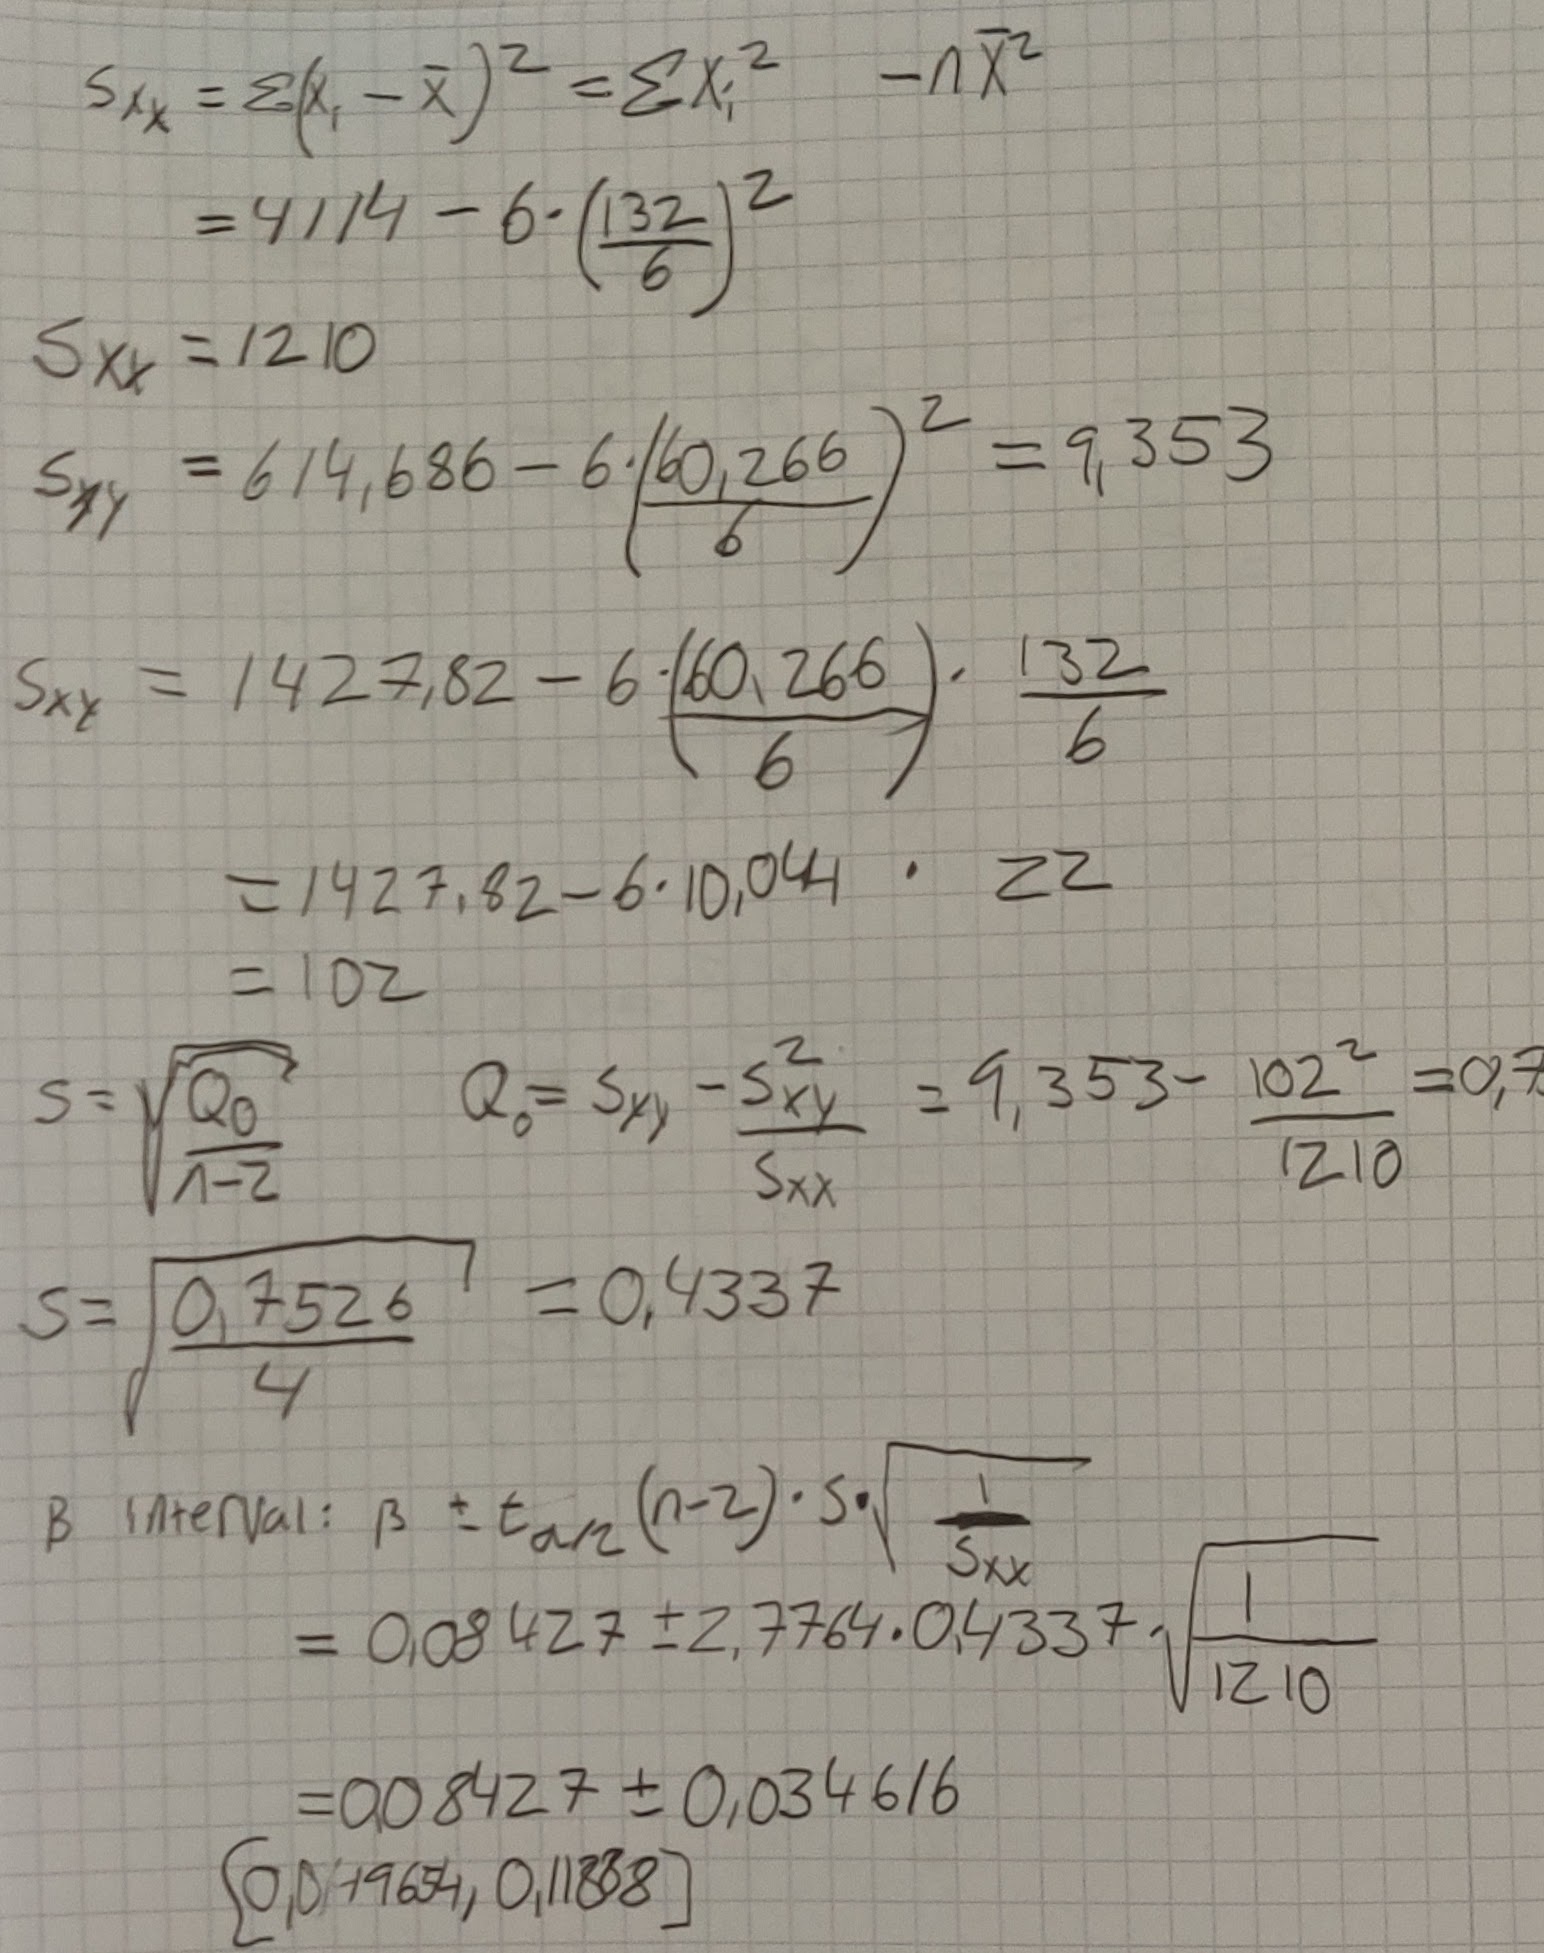 Sxx = Σ(xᵢ − x̄)² = Σxᵢ² − nx̄²
= 4114 − 6·(132/6)²
Sxx = 1210
Syy = 614,686 − 6·(60,266/6)² = 9,353
Sxy = 1427,82 − 6·(60,266/6) · 132/6
= 1427,82 − 6·10,044 · 22
= 102
S = √(Q₀/(n−2)) Q₀ = Sxy − S²xy/Sxx = 9,353 − 102²/1210 = 0,7
S = √(0,7526/4) = 0,4337
β interval: β ± t_α/2 (n−2)·S·√(1/Sxx)
= 0,08427 ± 2,7764·0,4337·√(1/1210)
= 0,08427 ± 0,034616